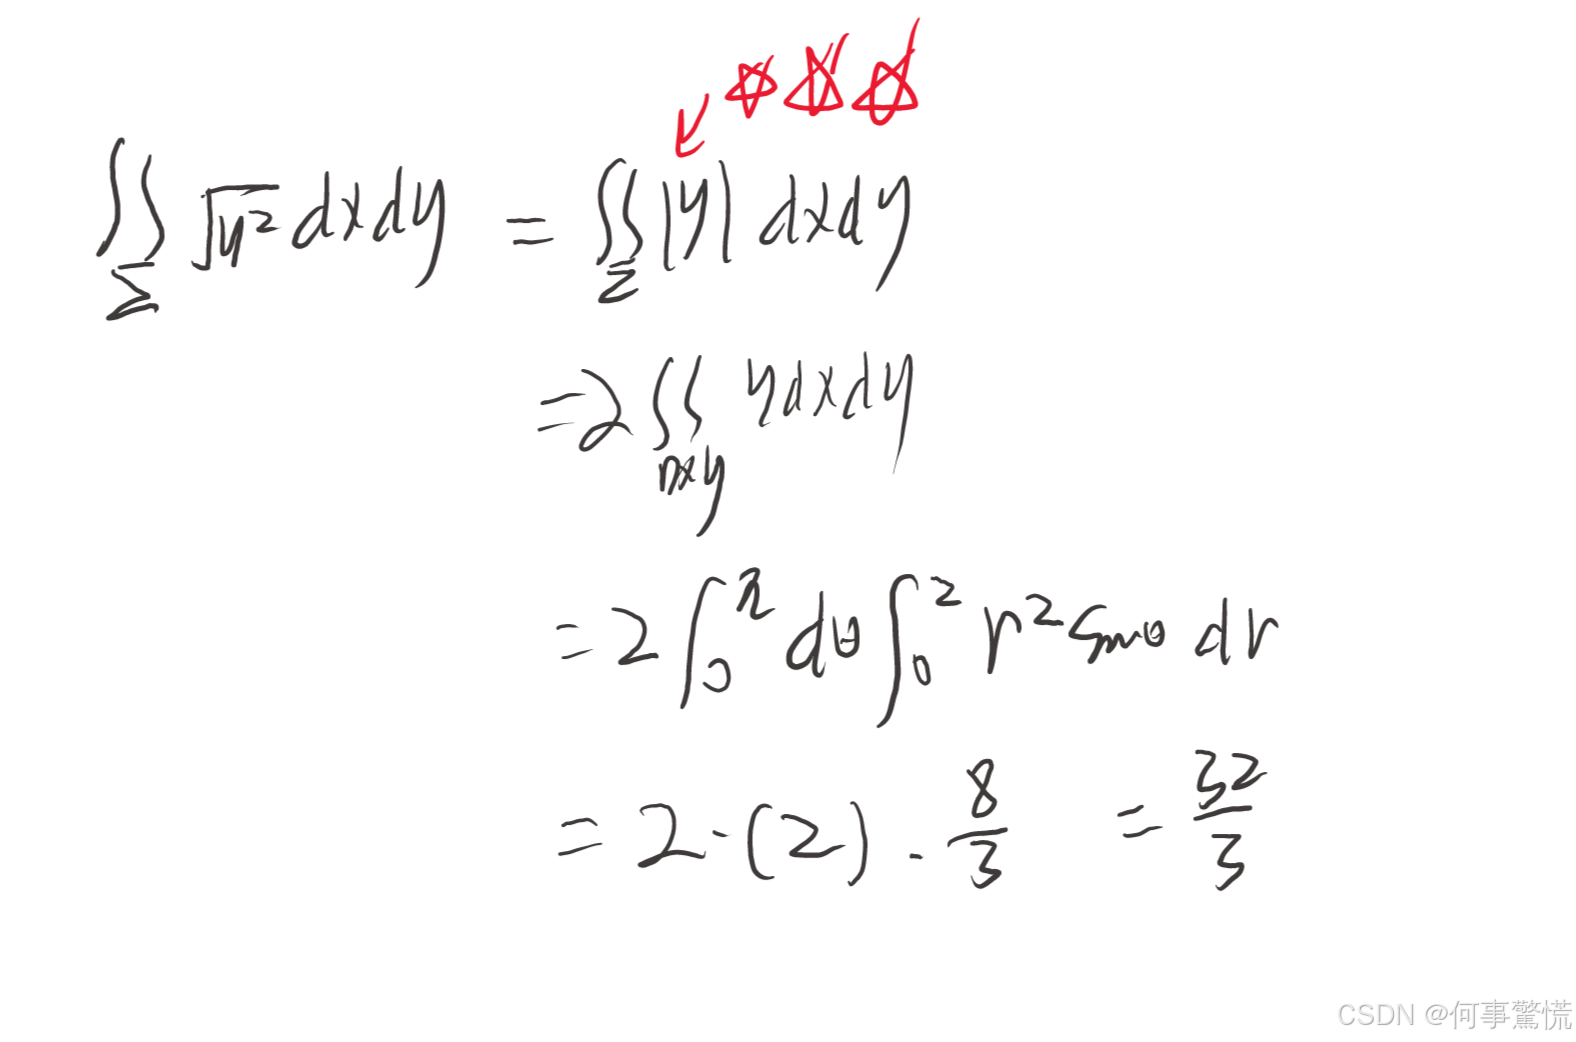 ∬_Σ √(y²) dxdy = ∬_Σ |y| dxdy
= 2 ∬_Dxy y dxdy
= 2 ∫_0^π dθ ∫_0^2 r² sinθ dr
= 2 · (2) · 8/3 = 32/3
CSDN @何事驚慌